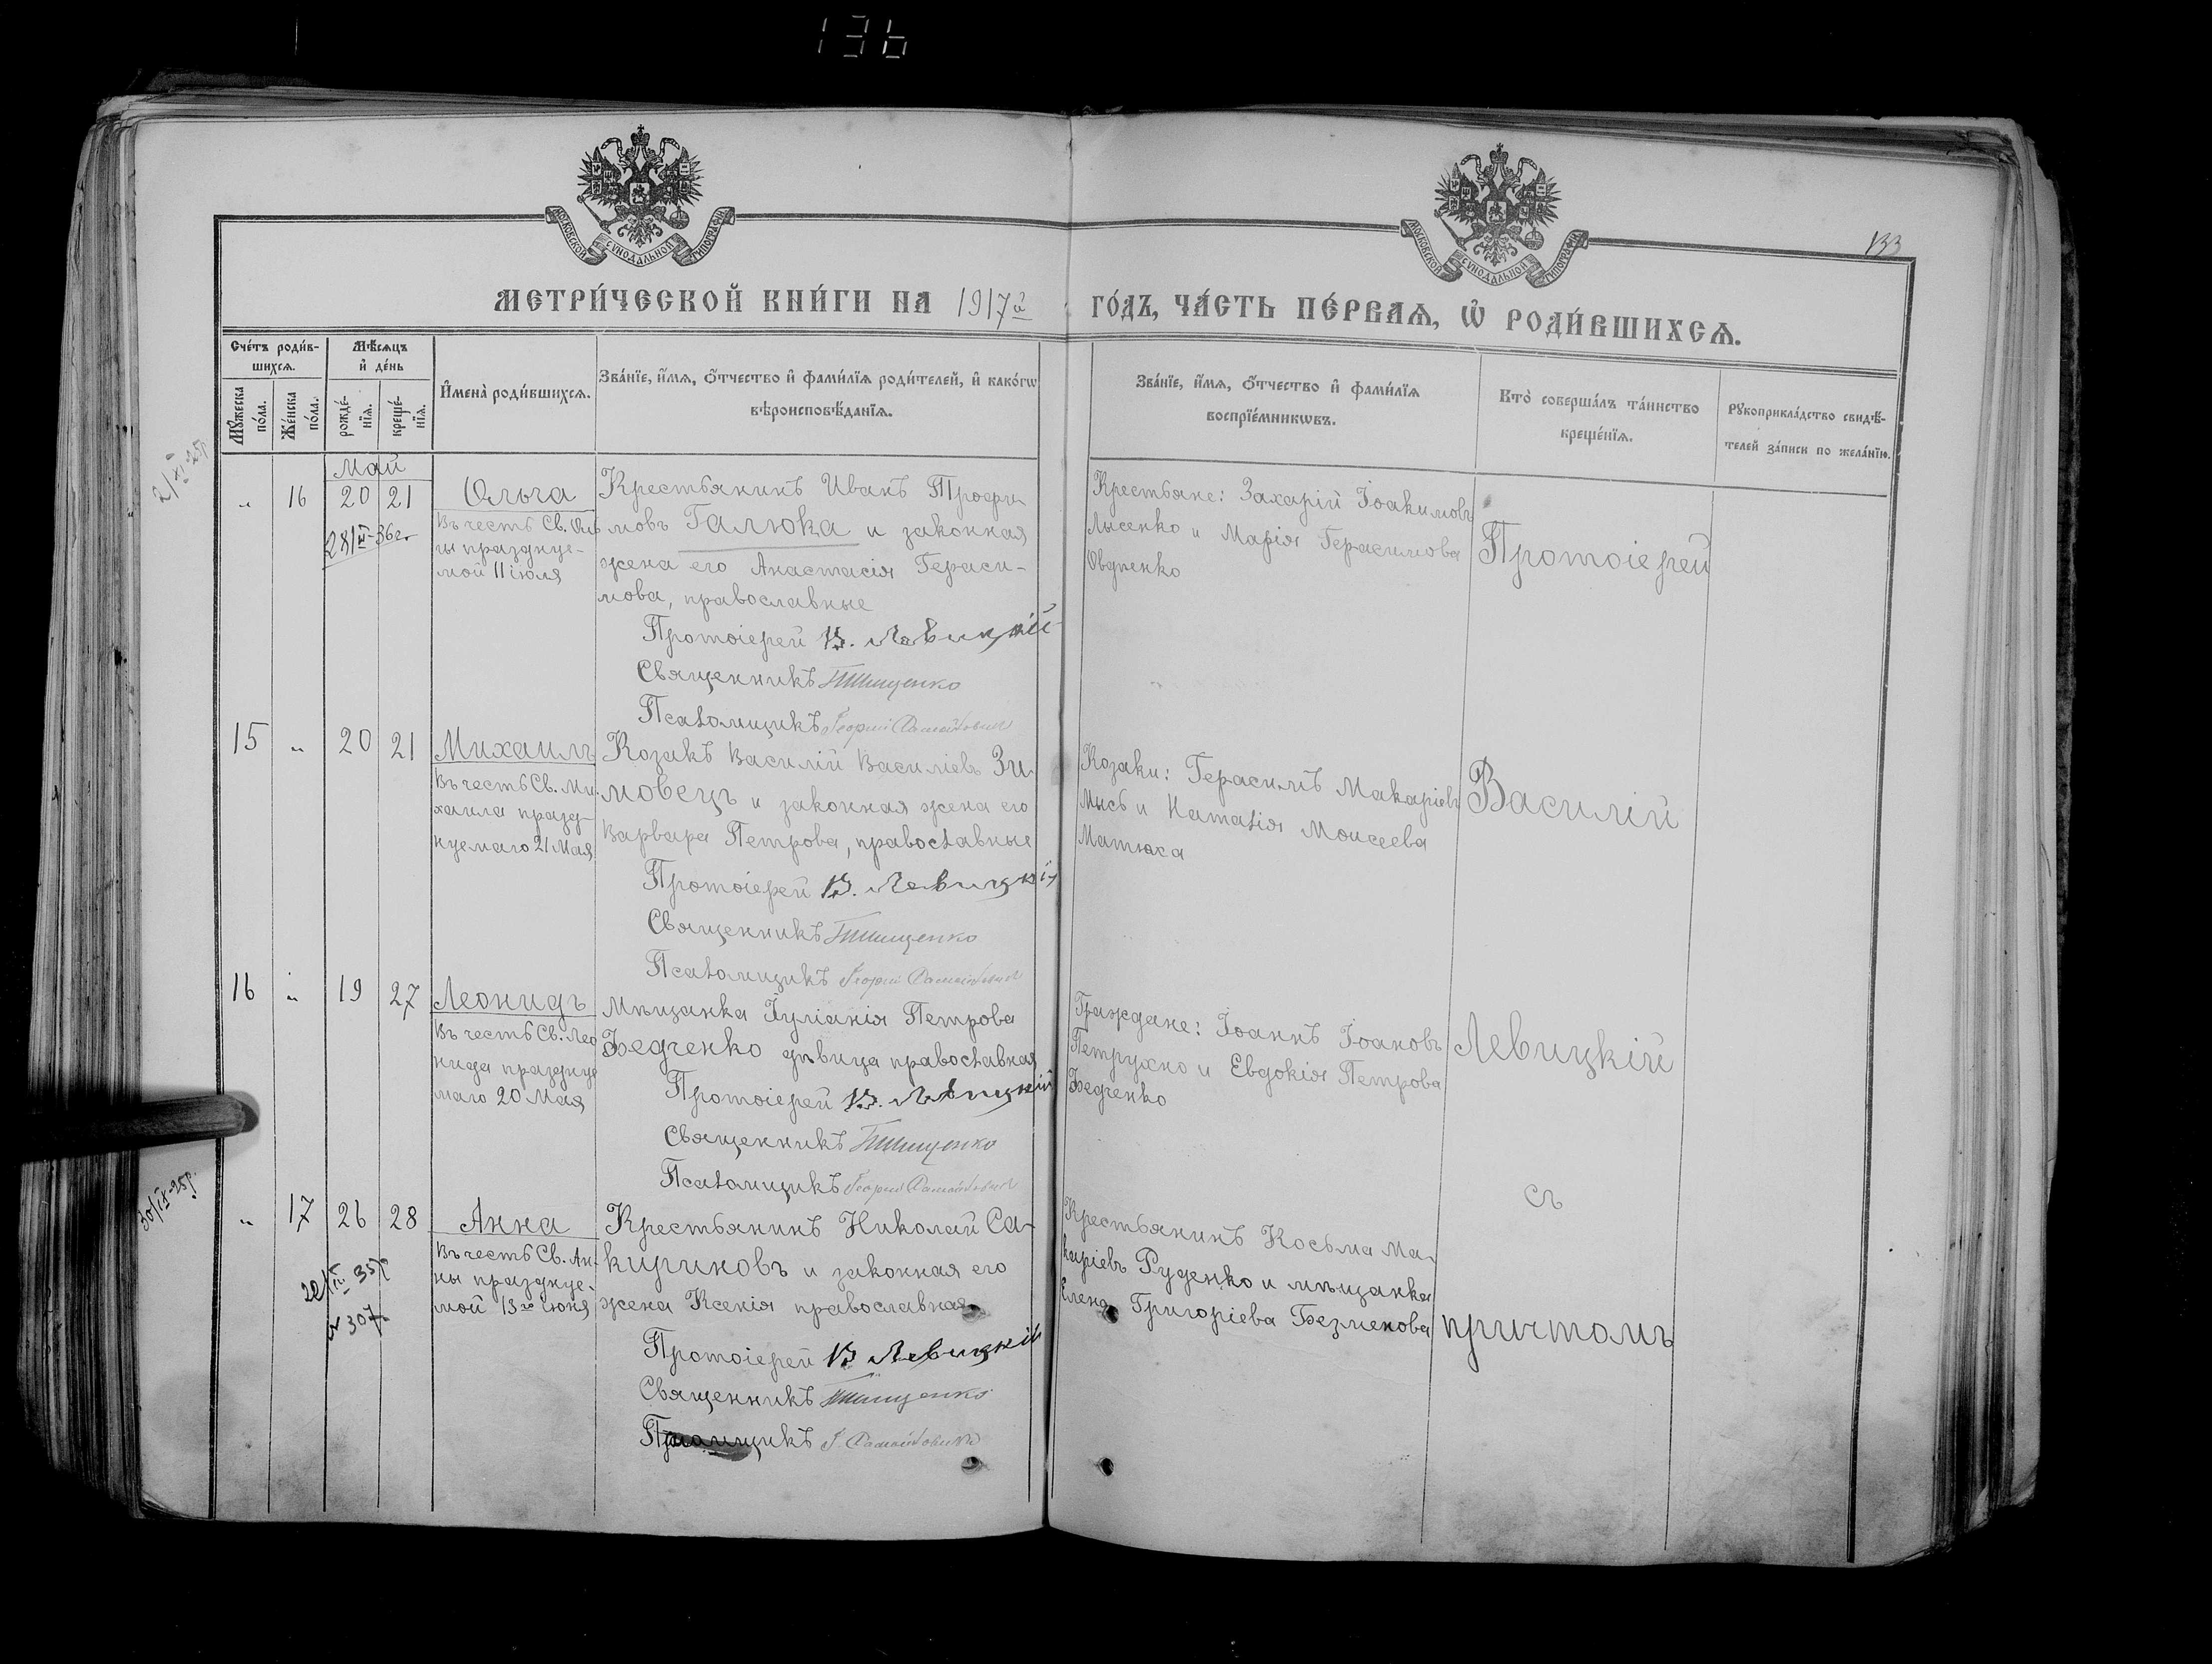 136
МОСКОВСКОЙ СѴНОДАЛЬНОЙ ТИПОГРАФІИ
МОСКОВСКОЙ СѴНОДАЛЬНОЙ ТИПОГРАФІИ
133
МЕТРИ́ЧЕСКОЙ КНИ́ГИ НА 1917й ГО́ДЪ, ЧА́СТЬ ПЕ́РВАѦ, Ѡ҆ РОДИ́ВШИХСѦ.
Сче́тъ роди́в-
шихсѧ.
Мѣ́сѧцъ
и҆ де́нь
Мꙋ́жеска
по́ла.
Же́нска
по́ла.
рожде́-
нїѧ.
креще́-
нїѧ.
И҆мена̀ роди́вшихсѧ.
Зва́нїе, и҆́мѧ, ѻ҆́тчество и҆ фами́лїѧ роди́телей, и҆ како́гѡ
вѣроисповѣ́данїѧ.
Зва́нїе, и҆́мѧ, ѻ҆́тчество и҆ фами́лїѧ
воспрїе́мникѡвъ.
Кто̀ соверша́лъ та́инство
креще́нїѧ.
Рꙋкоприкла́дство свидѣ́-
телей за́писи по жела́нїю.
Май
„ 16 20 21
Ольга
Въ честь Св. Оль
ги праздnуе-
мой 11 іюля
Крестьянинъ Иванъ Трофи
мовъ Галюка и законная
жена его Анастасія Гераси-
мова, православные
Протоіерей В. Левицкій
Священникъ Тищенко
Псаломщикъ Георгій
Крестьяне: Захарій Іоакимовъ
Лысенко и Марія Герасимова
Овдіенко
Протоіерей
15 „ 20 21
Михаилъ
Въ честь Св. Ми-
хаила празд-
нуемаго 21 Мая
Козакъ Василій Василіевъ Зи-
мовецъ и законная жена его
Варвара Петрова, православные
Протоіерей В. Левицкій
Священникъ Тищенко
Псаломщикъ Георгій
Козаки: Герасимъ Макаріевъ
Мысь и Наталія Моисеева
Матюха
Василій
16 „ 19 27
Леонидъ
Въ честь Св. Лео
нида праздnуе
маго 20 Мая
Мѣщанка Іуліанія Петрова
Бедченко дѣвица православная
Протоіерей В. Левицкій
Священникъ Тищенко
Псаломщикъ Георгій
Граждане: Іоаннъ Іоановъ
Петрухно и Евдокія Петрова
Бедченко
Левицкій
30/IX-25р.
„ 17 26 28
Анна
Въ честь Св. Ан-
ны праздnуе-
мой 13го іюня
Крестьянинъ Николай Са-
кириновъ и законная его
жена Ксенія православная
Протоіерей В Левицкій
Священникъ Тищенко
Псаломщикъ Г.
Крестьянинъ Косьма Ма-
каріевъ Руденко и мѣщанка
Елена Григоріева Безменова
съ
причтомъ